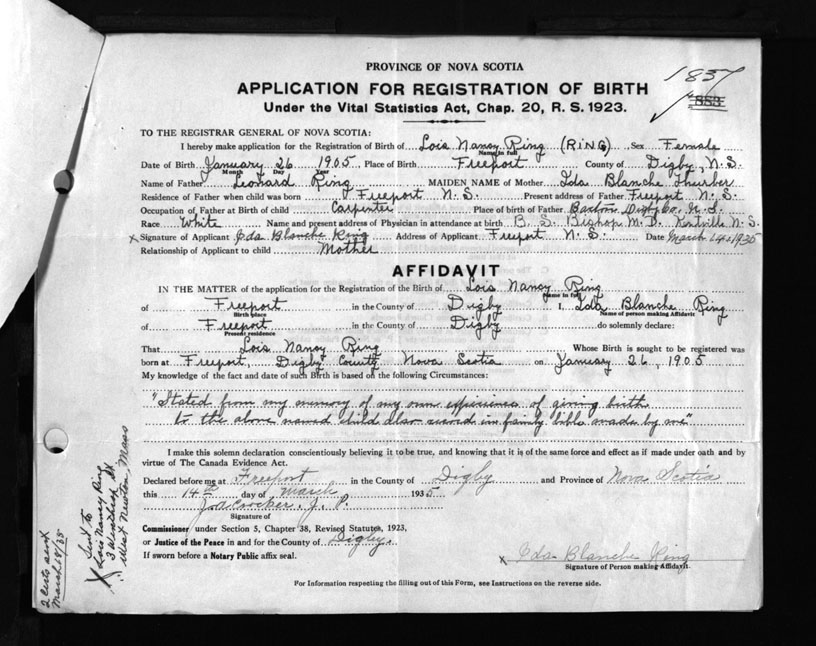 PROVINCE OF NOVA SCOTIA
1857
APPLICATION FOR REGISTRATION OF BIRTH
883
Under the Vital Statistics Act, Chap. 20, R. S. 1923.
TO THE REGISTRAR GENERAL OF NOVA SCOTIA:
I hereby make application for the Registration of Birth of Lois Nancy Ring (RING) Sex Female
Name in full
Date of Birth January 26 1905 Place of Birth Freeport County of Digby, N.S.
Month Day Year
Name of Father Leonard Ring MAIDEN NAME of Mother Ida Blanche Thurber
Residence of Father when child was born Freeport N.S. Present address of Father Freeport N.S.
Occupation of Father at Birth of child Carpenter Place of birth of Father Digby Co. N.S.
Race White Name and present address of Physician in attendance at birth B. S. Bishop M.D. Kentville N.S.
x Signature of Applicant Ida Blanche Ring Address of Applicant Freeport N.S. Date March 14 1935
Relationship of Applicant to child Mother
AFFIDAVIT
IN THE MATTER of the application for the Registration of the Birth of Lois Nancy Ring
Name in full
of Freeport in the County of Digby I, Ida Blanche Ring
Birth place Name of person making Affidavit
of Freeport in the County of Digby do solemnly declare:
Present residence
That Lois Nancy Ring Whose Birth is sought to be registered was
born at Freeport, Digby County Nova Scotia on January 26, 1905
My knowledge of the fact and date of such Birth is based on the following Circumstances:
"Stated from my memory of my own experience of giving birth
to the above named child also record in family bible made by me"
I make this solemn declaration conscientiously believing it to be true, and knowing that it is of the same force and effect as if made under oath and by
virtue of The Canada Evidence Act.
Declared before me at Freeport in the County of Digby and Province of Nova Scotia
this 14th day of March 1935
J. P.
Signature of
Commissioner under Section 5, Chapter 38, Revised Statutes, 1923,
or Justice of the Peace in and for the County of Digby.
If sworn before a Notary Public affix seal.
x Ida Blanche Ring
Signature of Person making Affidavit.
For Information respecting the filling out of this Form, see Instructions on the reverse side.
Sent to
Lois Nancy Ring
3 Winthrop St
West Newton, Mass
X
2 certs sent
March 18/35